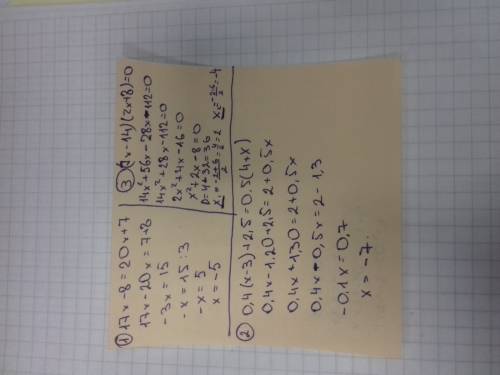 ① 17x-8=20x+7
17x-20x=7+8
-3x=15
-x=15:3
-x=5
x=-5
② 0,4(x-3)+2,5=0.5(4+x)
0,4x-1.20+2,5=2+0,5x
0,4x+1,30=2+0,5x
0,4x-0,5x=2-1,3
-0,1x=0,7
x=-7.
③ (7x-14)(2x+8)=0
14x²+56x-28x-112=0
14x²+28x-112=0
2x²+4x-16=0
x²+2x-8=0
D=4+32=36
x₁=(-2+6)/2=4/2=2 x₂=(-2-6)/2=-4